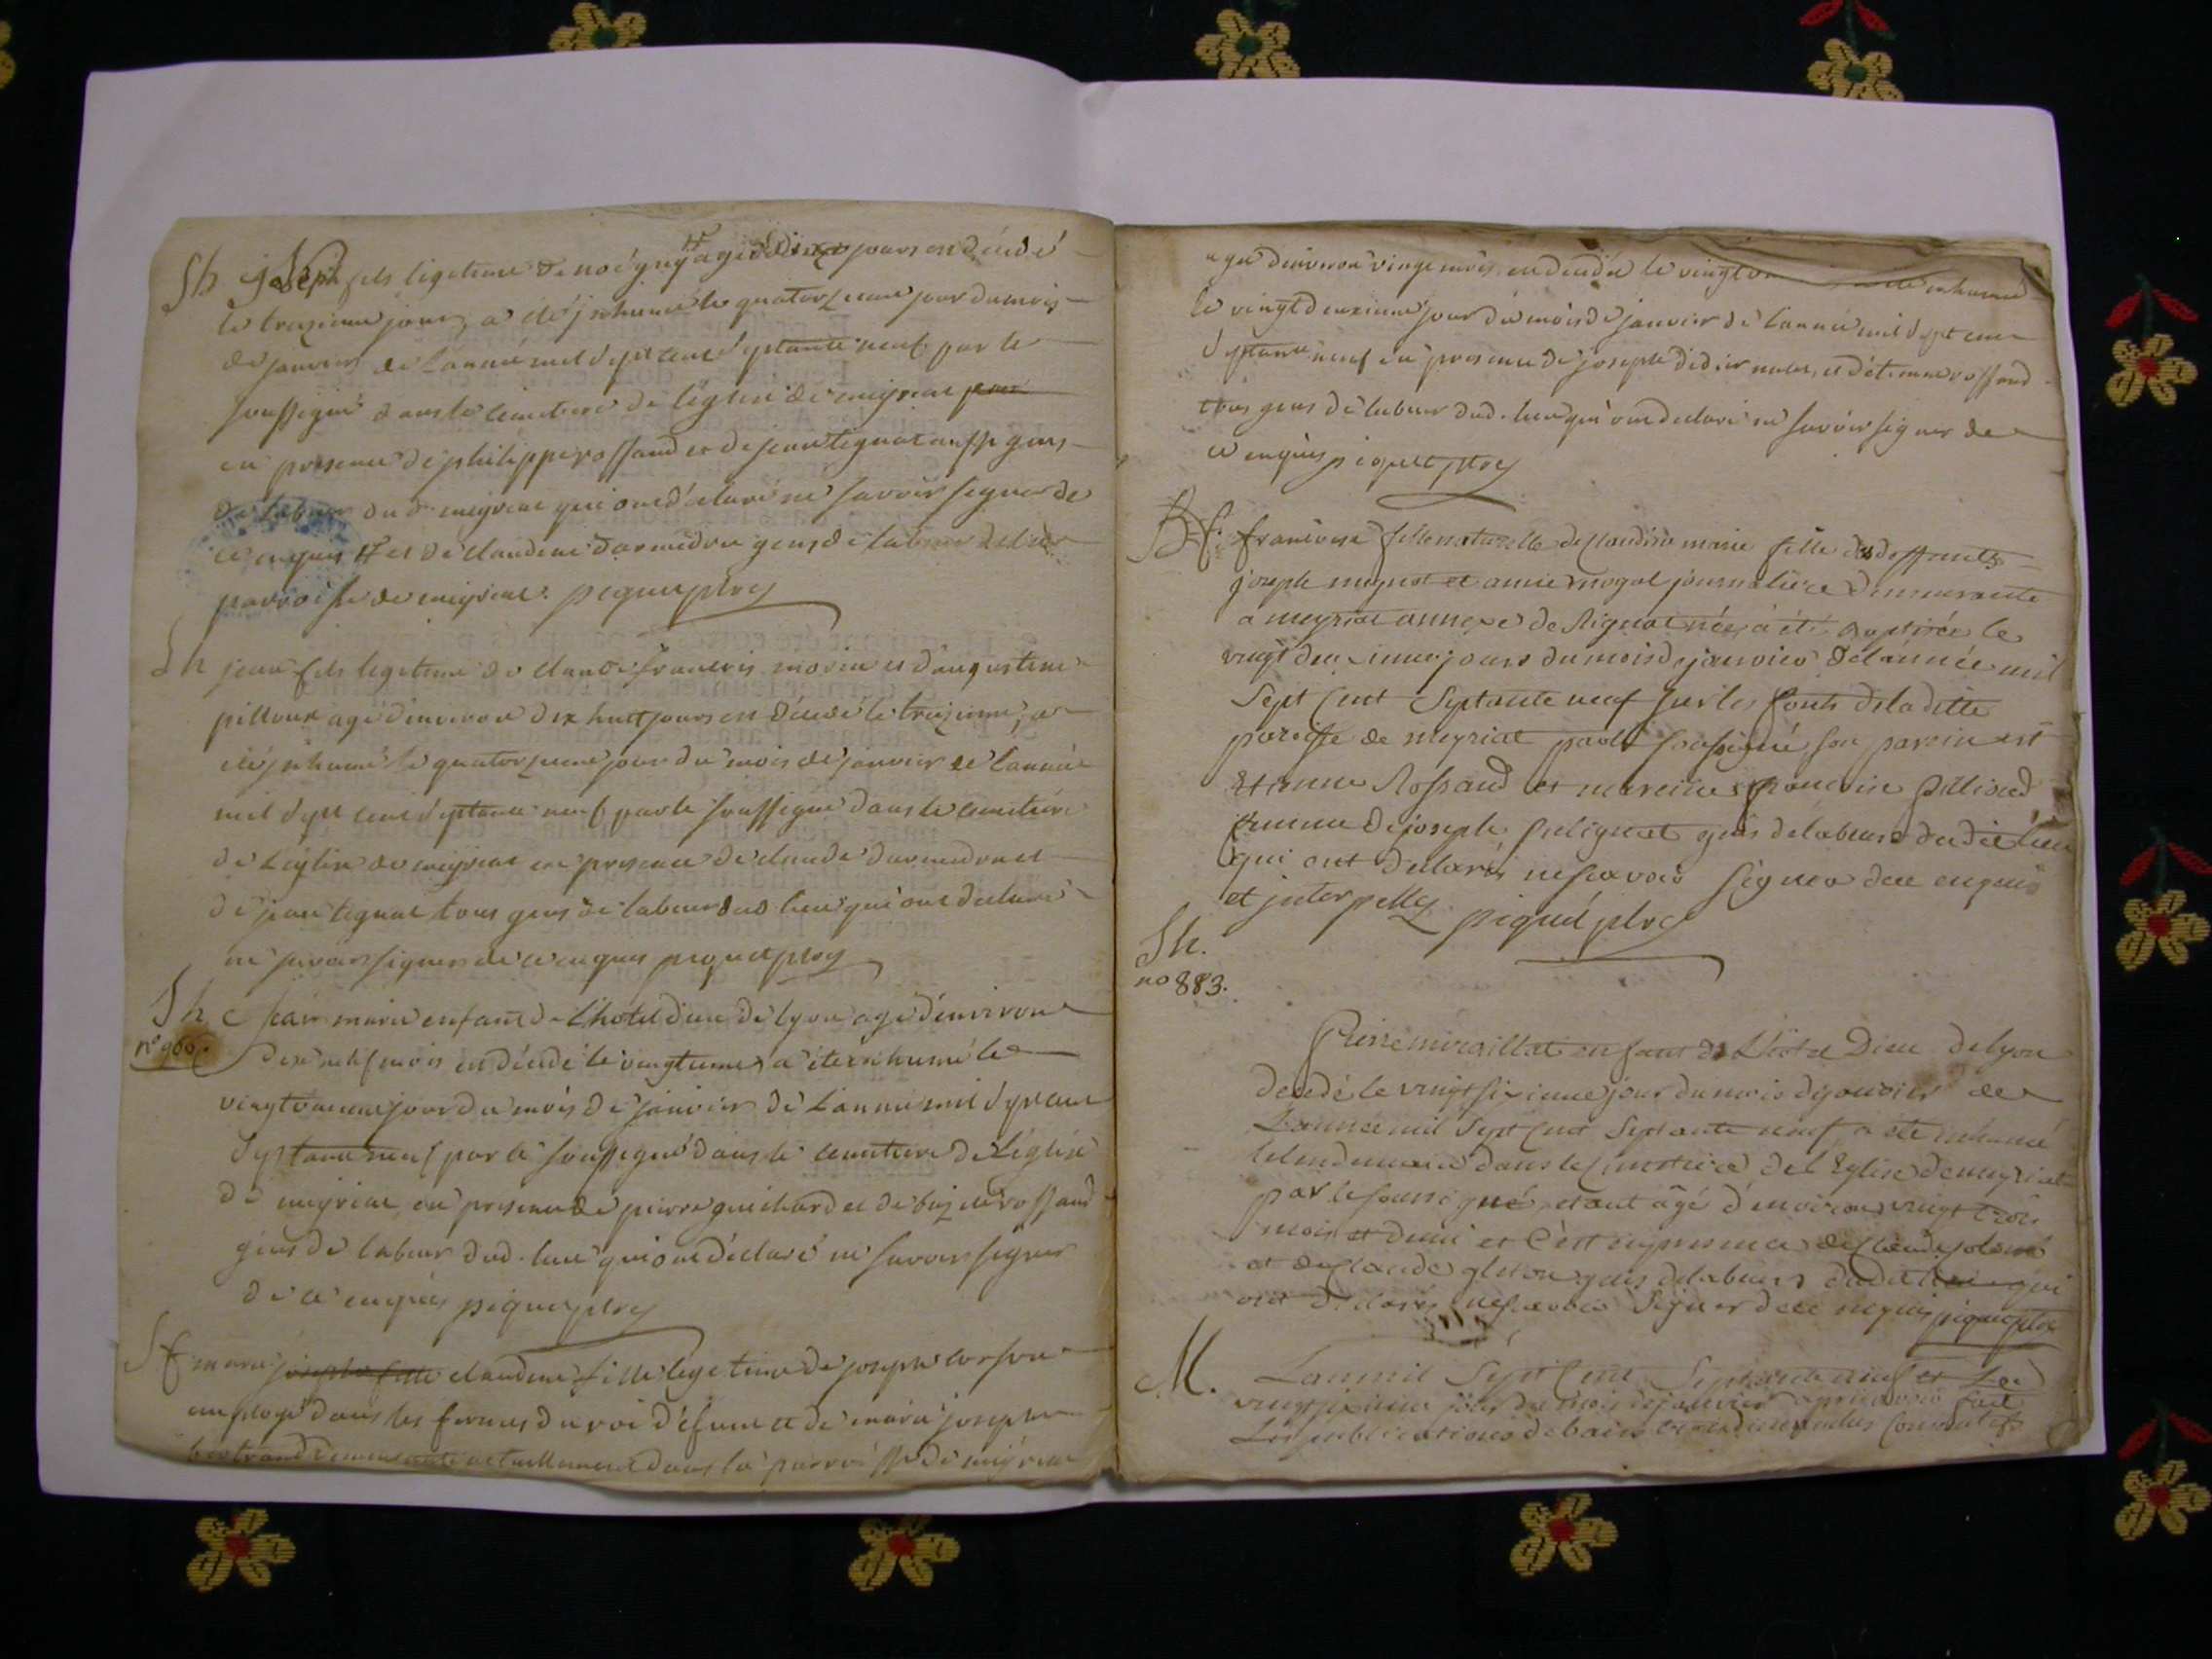 Sh joseph fils ligetime de noé guy # agé de jours est décédé
le treizieme jour, a été jnhumé le quatorzieme jour du mois
de janvier de l'année mil sept cent septante neuf par le
soussigné dans le cimetiere de l'église de meyriat
en presence de philippe rossand et de jean tignat aussi gens
de labeur dud. meyriat qui ont déclaré ne savoir signer de
ce enquis # et de claudine darmedru gens de labeur
parroisse de meyriat. piquet ptre
Sh jean fils legetime de claude françois morin et d'augustine
pilloux agé d'environ dix huit jours est décédé le treizieme, a
été jnhumé le quatorzieme jour du mois de janvier de l'année
mil sept cent septante neuf par le soussigné dans le cimetiere
de l'eglise de meyriat en presence de claude darmedru et
de jean tignat tous gens de labeur dud lieu qui ont declaré
ne savoir signer de ce enquis piquet ptre
Sh jean marie enfant de l'hotel dieu de lyon agé d'environ
n° 960. dix neuf mois est décédé le vingtieme a été inhumé le
vingt unieme jour du mois de janvier de l'année mil sept cent
septante neuf par le soussigné dans le cimetiere de l'église
de meyriat, en presence de pierre guichard et de rossand
gens de labeur dud. lieu qui ont déclaré ne savoir signer
de ce enquis piquet ptre
Sf marie josephe fille claudine fille legetime de joseph
employé dans les fermes du roi défunt et de marie josephe
bertrand demeurante actuellement dans la parroisse de meyriat
agée d'environ vingt mois, est decedée le vingt inhumé
le vingt deuxieme jour du mois de janvier de l'année mil sept cent
septante neuf en presence de joseph didier et d'étienne rossand
tous gens de labeur dud. lieu qui ont declaré ne savoir signer de
ce enquis piquet ptre
Bf. francoise fille naturelle de claudine marie fille des deffunts
joseph mugnot et anne mogal journaliere demeurante
a meyriat annexe de Rignat née, a été baptisée le
vingt deuxieme jours du mois de janvier de l'année mil
sept cent septante neuf sur les fonts de la ditte
paroisse de meyriat par le soussigné son parrin est
Etienne Rossand et mareine francoise pilliond
femme de joseph gens de labeurs dudit lieu
qui ont declarés ne scavoir signer de ce enquis
et jnterpellez piquet ptre
Sh.
no 883.
Pierre miraillat enfant de L'hotel Dieu de lyon
decedé le vingt sixieme jour du mois de janvier de
L'année mil sept cent septante neuf a été inhumé
le lendemain dans le Cimetiere de l'Eglise de meyriat
par le soussigné, etant âgé d'environ vingt trois
mois et demi et c'est en presence de Claude
et de Claude gens de labeurs dudit lieu qui
ont declarés ne scavoir signer de ce enquis piquet ptre
M. L'an mil sept cent septante neuf et Le
vingt sixieme jour du mois de janvier apres avoir fait
Les publications de bans